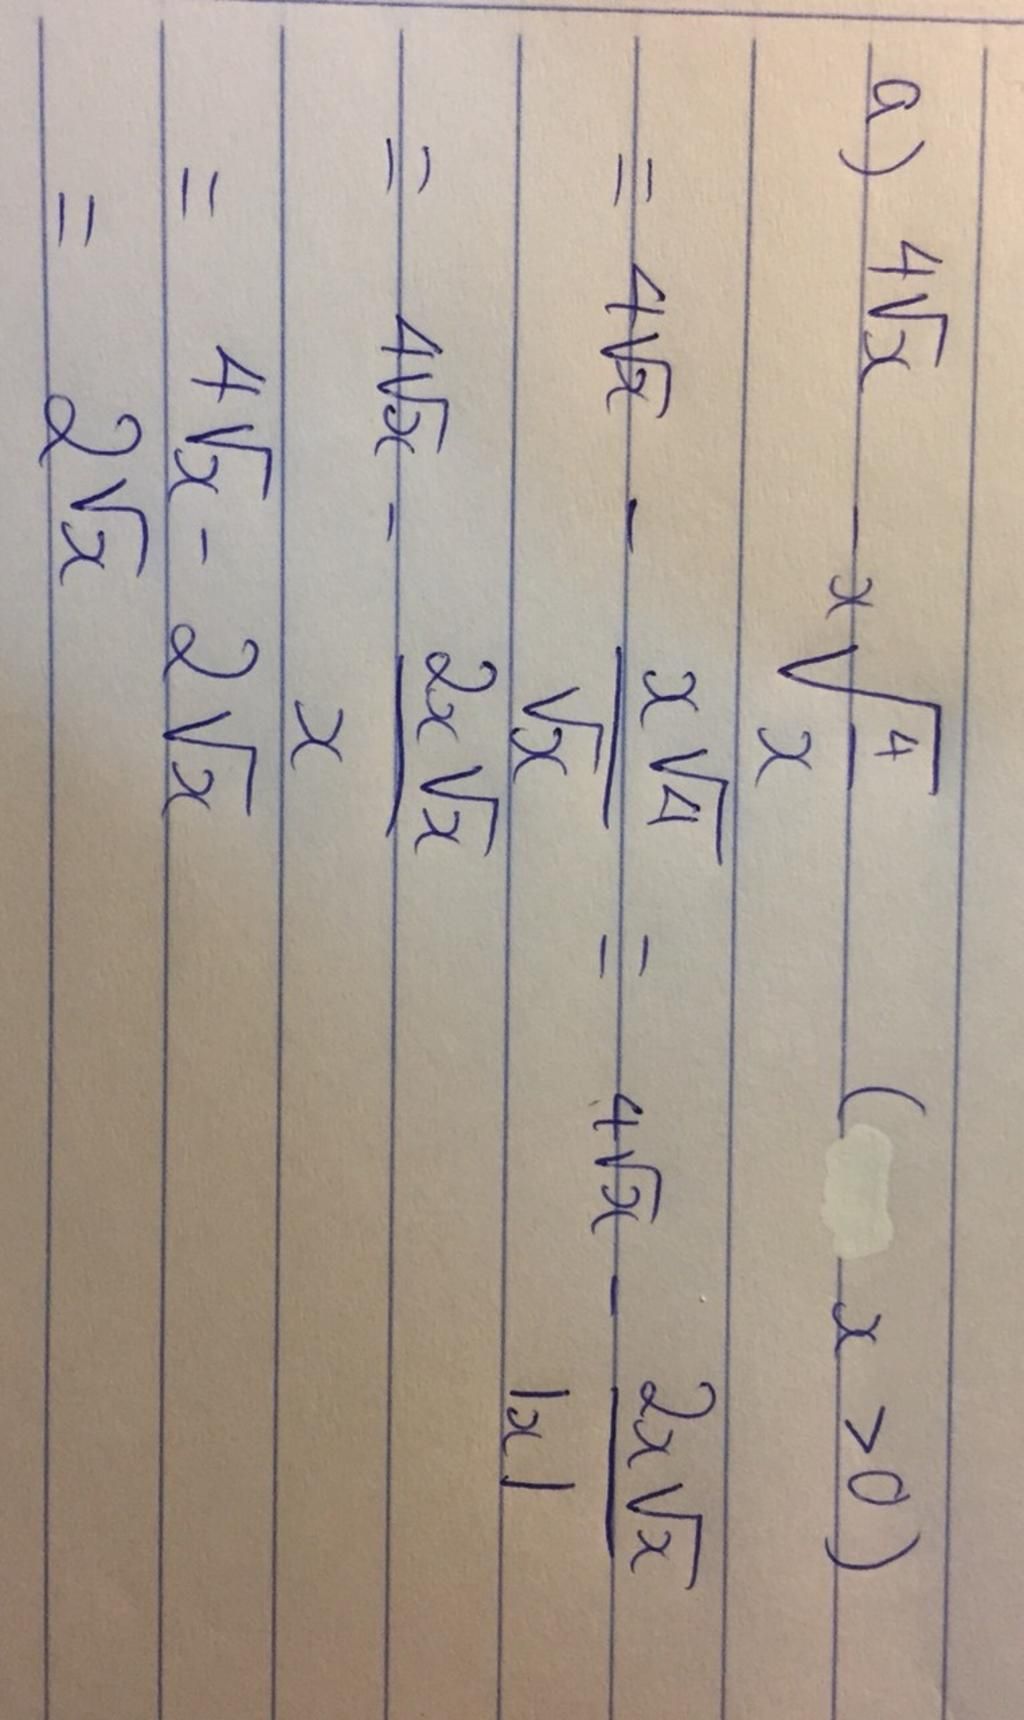 a) 4√x - x√(4/x) ( x > 0 )
= 4√x - (x√4)/(√x) = 4√x - (2x√x)/|x|
= 4√x - (2x√x)/x
= 4√x - 2√x
= 2√x